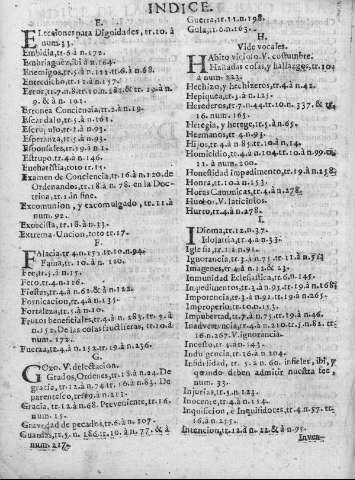 INDICE.
E.
Elecciones para Dignidades, tr. 10. à
num. 33.
Embidia, tr. 6 à n. 172.
Embriaguez, ibi à n. 164.
Enemigos, tr. 5 à n. 111 tr. 6 à n. 68.
Entredicho, tr. 12 à n. 157.
Error, tr. 7. n. 8 tr. 10 n. 282. & tr. 19. à n.
9. & à n. 101.
Erronea Conciencia, tr. 2. à n. 19.
Escandalo, tr. 5. à n. 161.
Escrupulo, tr. 2 à n. 93.
Esperança, tr. 5 à n. 95.
Esponsales, tr. 19 à n. 1.
Estrupo, tr. 4 à n. 146.
Eucharistia, toto tr. 17.
Examen de Conciencia, tr. 16 à n. 120. de
Ordenandos, tr. 18 à n. 78. en la Doc-
trina, tr. 1. in fine.
Excomunion, y excomulgado, tr. 12. à
num. 92.
Exorcista, tr. 18 à n. 33.
Extrema-Uncion, toto tr. 17.
F
Falacia, tr. 4 n. 157. tr. 10. n. 94.
Fama, tr. 10. à n. 120.
Fee, tr. 5 à n. 15.
Feto, tr. 4 n. 116.
Fiestas, tr. 4. à n. 62. & à n. 122.
Fornicacion, tr. 4. à n. 135.
Fortaleza, tr. 5 à n. 10.
Frutos beneficiales, tr. 4. à n. 283. tr. 5. à
n. 152. De las cosas fructiferas, tr. 10. à
num. 172.
Fuerza, tr. 4. à n. 152. tr. 19. à n. 236.
G.
Gozo. V. delectacion.
Grados, Ordenes, tr. 18 à n. 24. De
gracia, tr. 12. à n. 74 tr. 16. n. 83. De
parentesco, tr. 19. n. 213.
Gracia, tr. 12. à n. 68. Preveniente, tr. 16.
num. 15.
Gravedad de pecados, tr. 6 à n. 107.
Guardas, tr. 5. n. 186. tr. 10. à n. 77. & à
num. 217.
Guerra, tr. 11. n. 198.
Gula, tr. 6 n. 163.
H.
Vide vocales.
Habito vicioso. V. costumbre.
Halladas cosas, y hallazgos, tr. 10.
à num. 223.
Hechizo, y hechizeros, tr. 4. à n. 42.
Hepiquea, tr. 3. à n. 125.
Herederos, tr. 7. n. 44. tr. 10. n. 337. & tr.
16. num. 165.
Heregia, y herege, tr. 5. à n. 65.
Hermanos, tr. 4 n. 93.
Hijos, tr. 4. à n. 85. tr. 10. à n. 14.
Homicidio, tr. 4. à n. 104. tr. 10. à n. 99. tr.
21. à num. 200.
Honestidad impedimento, tr. 19. à n. 258.
Honra, tr. 10. à n. 153.
Horas Canonicas, tr. 4. à n. 278.
Huebos. V. lacticinios.
Hurto, tr. 4. à n. 278.
I.
Idioma, tr. 12. n. 37.
Idolatria, tr. 4. n. 33.
Iglesia, tr. 1. à n. 91.
Ignorancia, tr. 3. à n. 75. tr. 11. à n. 51.
Imagenes, tr. 4. à n. 12. & 23.
Inmunidad Eclesiastica, tr. 6. n. 145.
Inpedimentos, tr. 3. à n. 93. tr. 19. à n. 168.
Inpotencia, tr. 3. à n. 92. tr. 19. à n. 265.
Improperio, tr. 10. n. 153.
Impubertad, tr. 7. à n. 75. tr. 19. à n. 46.
Inadvertencia, tr. 4. à n. 210. tr. 5. n. 82. tr.
16. n. 267. V. ignorancia.
Incesto, tr. 4. à n. 143.
Indulgencia, tr. 16. à n. 204.
Infidelidad, tr. 5. à n. 60. infieles, ibi, y
quando deben admitir nuestra fee,
num. 33.
Injurias, tr. 5. n. 123.
Inocente, tr. 4. à n. 154.
Inquisicion, è Inquisidores, tr. 4. n. 57. tr.
16. à n. 255.
Intencion, tr. 12. à n. 22. & à n. 95.
Inven-